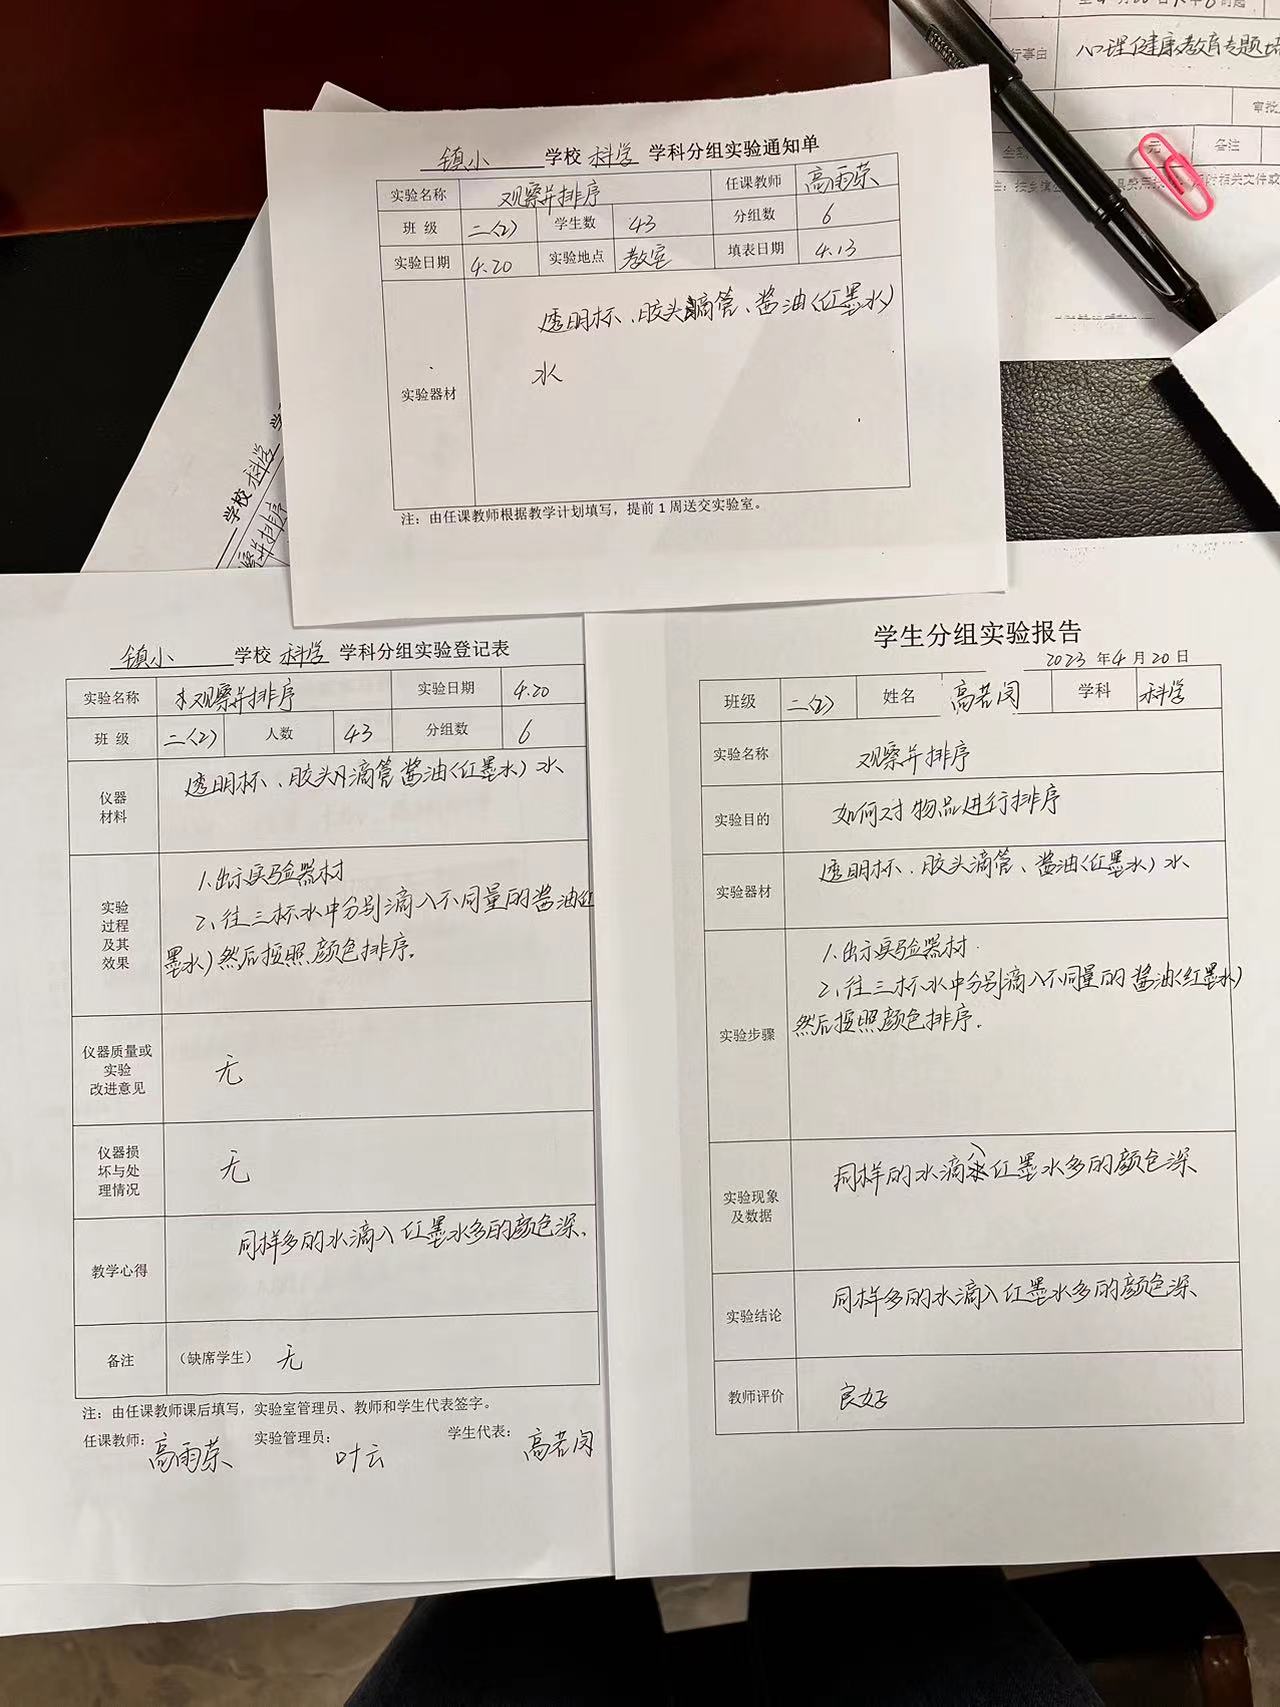 至4月
行事由 心理健康教育专题培
审批
金额 元 备注
镇小 学校 科学 学科分组实验通知单
实验名称 观察并排序 任课教师 高雨荣
班 级 二(2) 学生数 43 分组数 6
实验日期 4.20 实验地点 教室 填表日期 4.13
实验器材
透明杯、胶头滴管、酱油(红墨水)
水
注：由任课教师根据教学计划填写，提前 1 周送交实验室。
学校 科学 学
察并排序
镇小 学校 科学 学科分组实验登记表
实验名称 观察并排序 实验日期 4.20
班 级 二(2) 人数 43 分组数 6
仪器
材料
透明杯、胶头滴管 酱油(红墨水) 水
实验
过程
及其
效果
1、出示实验器材
2、往三杯水中分别滴入不同量的酱油(红
墨水)然后按照颜色排序.
仪器质量或
实验
改进意见
无
仪器损
坏与处
理情况
无
教学心得
同样多的水滴入红墨水多的颜色深.
备注 （缺席学生） 无
注：由任课教师课后填写，实验室管理员、教师和学生代表签字。
任课教师：高雨荣 实验管理员：叶云 学生代表：高若闵
学生分组实验报告
2023 年 4 月 20 日
班级 二(2) 姓名 高若闵 学科 科学
实验名称 观察并排序
实验目的 如何对物品进行排序
实验器材 透明杯、胶头滴管、酱油(红墨水) 水
实验步骤
1、出示实验器材.
2、往三杯水中分别滴入不同量的酱油(红墨水)
然后按照颜色排序.
实验现象
及数据
同样的水滴入红墨水多的颜色深
实验结论 同样多的水滴入红墨水多的颜色深
教师评价 良好